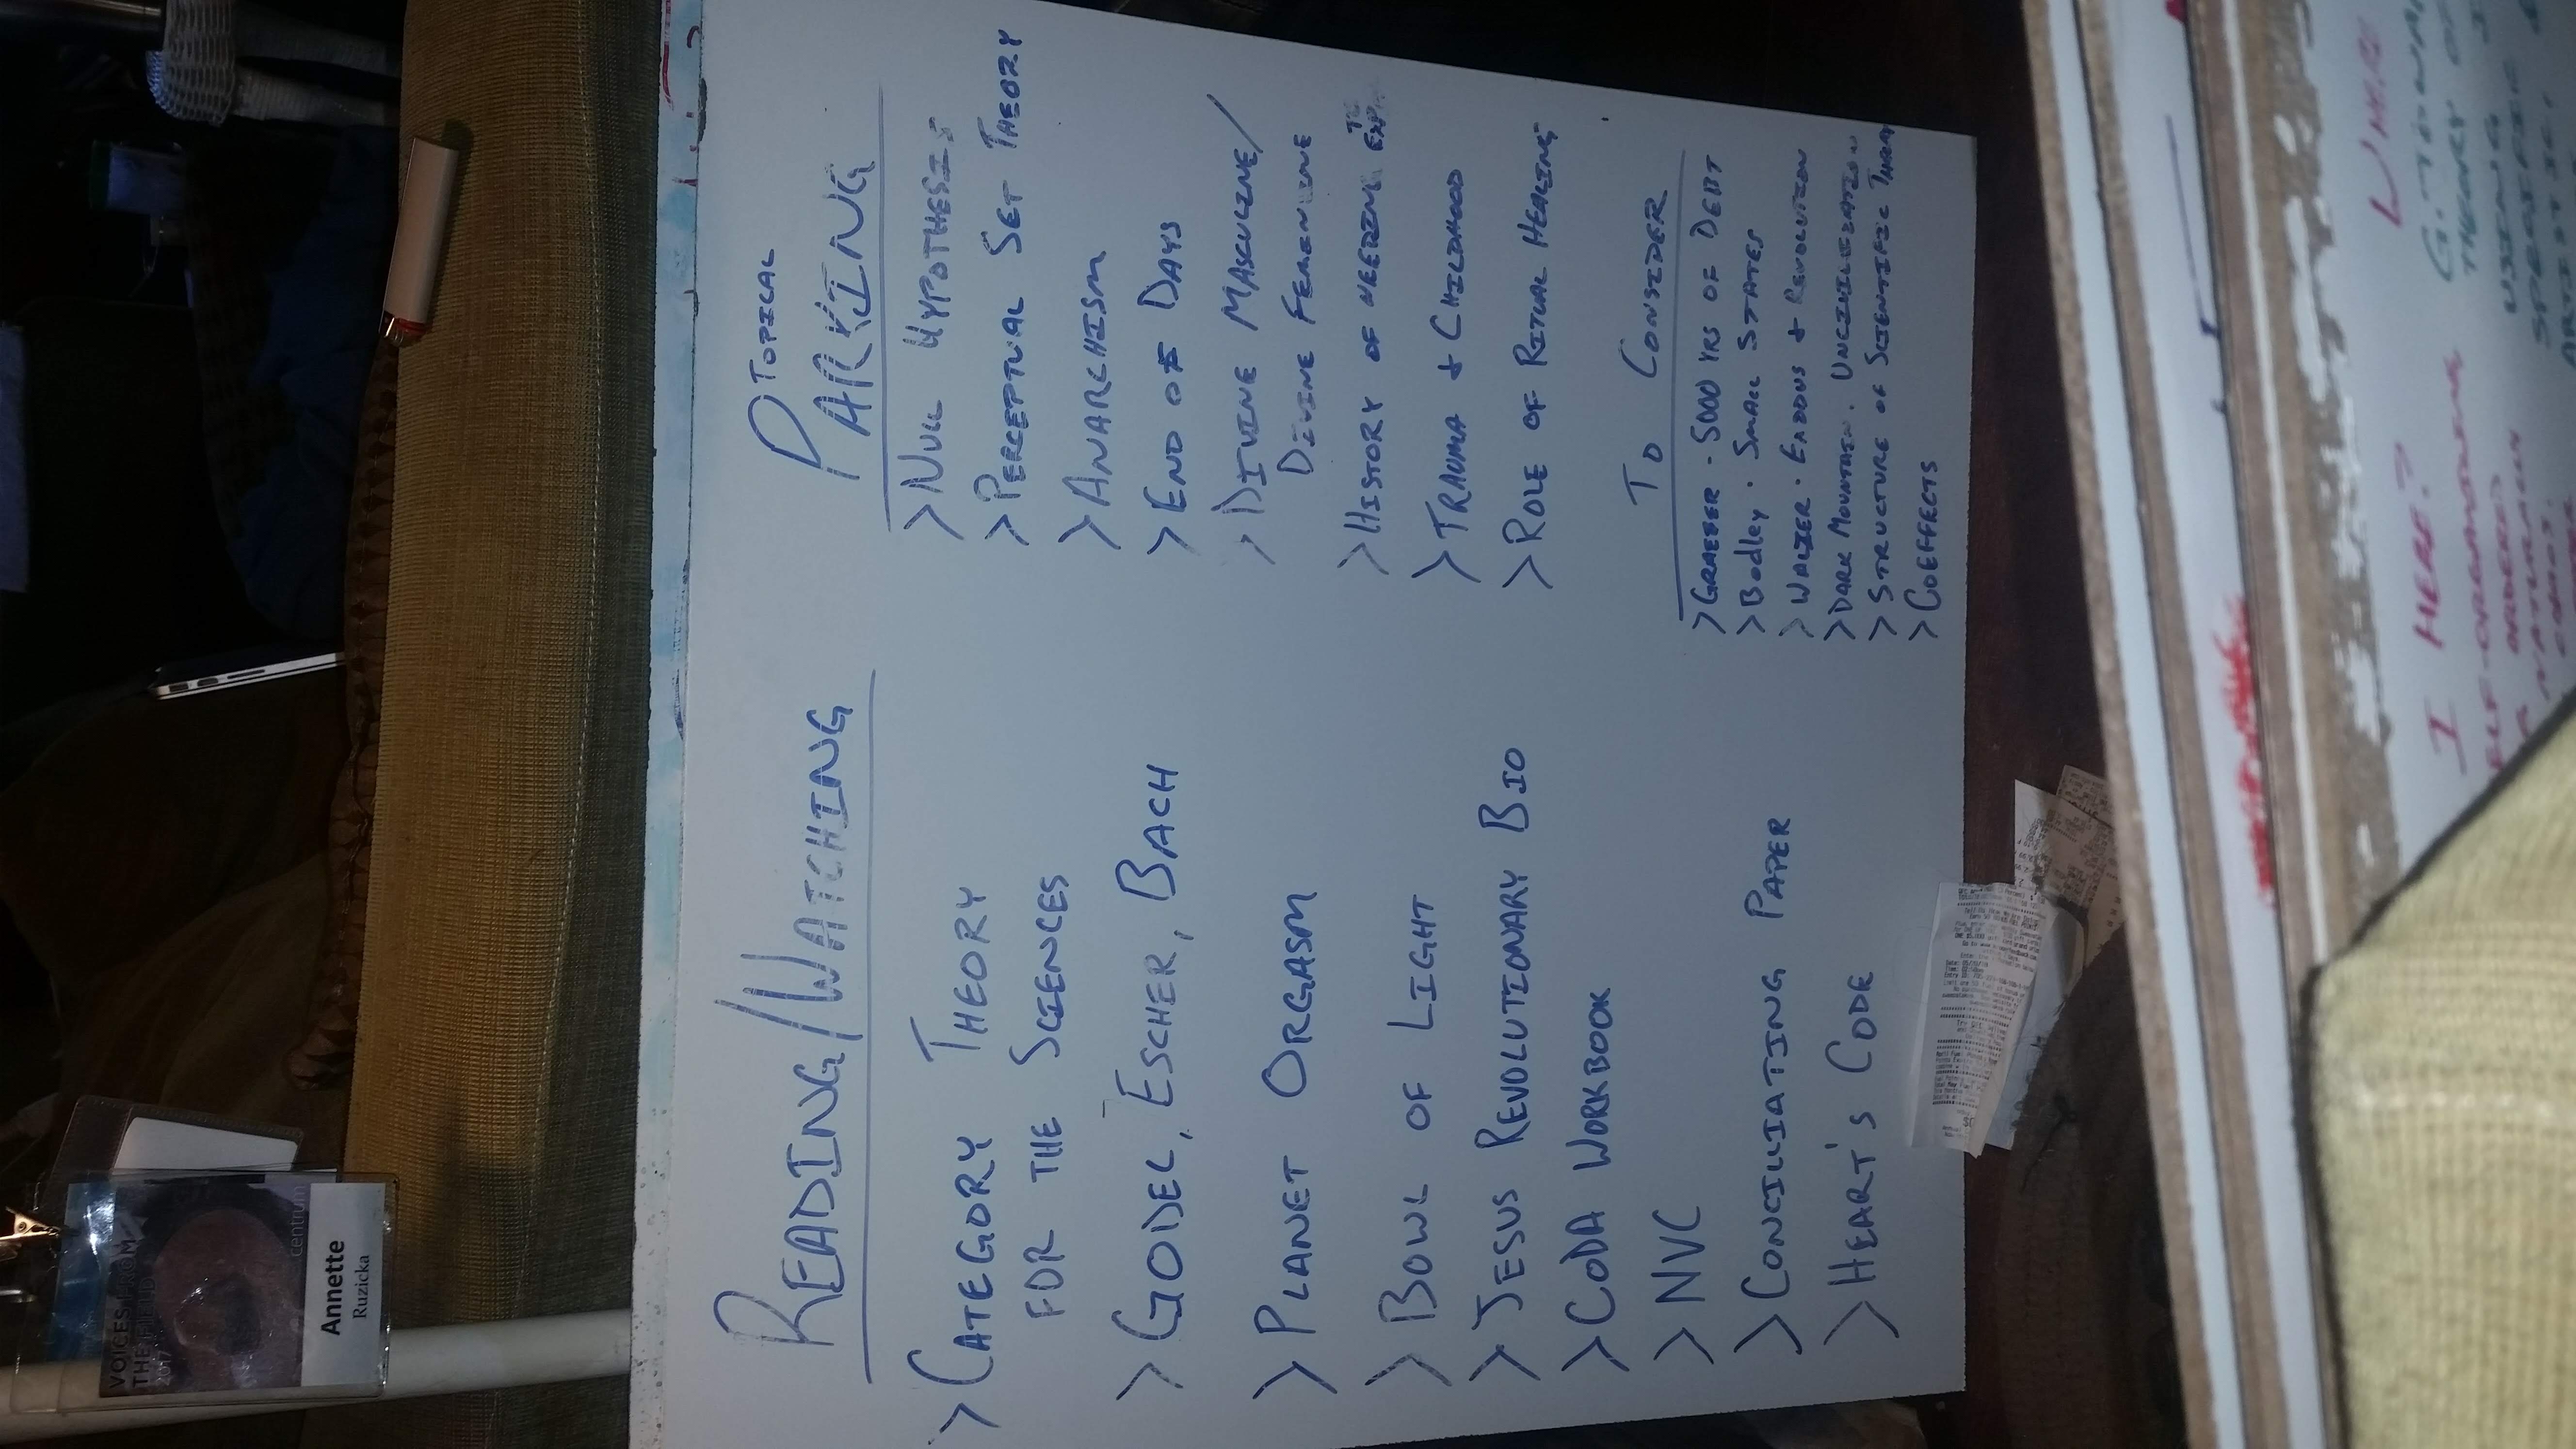 VOICES FROM
THE FIELD
2017
centrum
Annette
Ruzicka
READING/WATCHING
> CATEGORY THEORY
FOR THE SCIENCES
> GODEL, ESCHER, BACH
> PLANET ORGASM
> BOWL OF LIGHT
> JESUS REVOLUTIONARY BIO
> CODA WORKBOOK
> NVC
> CONCILIATING PAPER
> HEART'S CODE
TOPICAL
PARKING
> NULL HYPOTHESIS
> PERCEPTUAL SET THEORY
> ANARCHISM
> END OF DAYS
> DIVINE MASCULINE/
DIVINE FEMENINE
> HISTORY OF NEEDING
> TRAUMA & CHILDHOOD
> ROLE OF RITUAL HEALING
TO CONSIDER
> GRAEBER - 5000 YRS OF DEBT
> Bodley · SMALL STATES
> WALZER · EXODUS & REVOLUTION
> DARK MOUNTAIN. UNCIVILIZATION
> STRUCTURE OF SCIENTIFIC THEORY
> COEFFECTS
I HERE?
ELF-ORGANIZING
ORDERED
NATURALLY
CHAOS.
WHERE
G. TOWA
THEORY OF
USING
SPECIFIC
ARTISTIC,